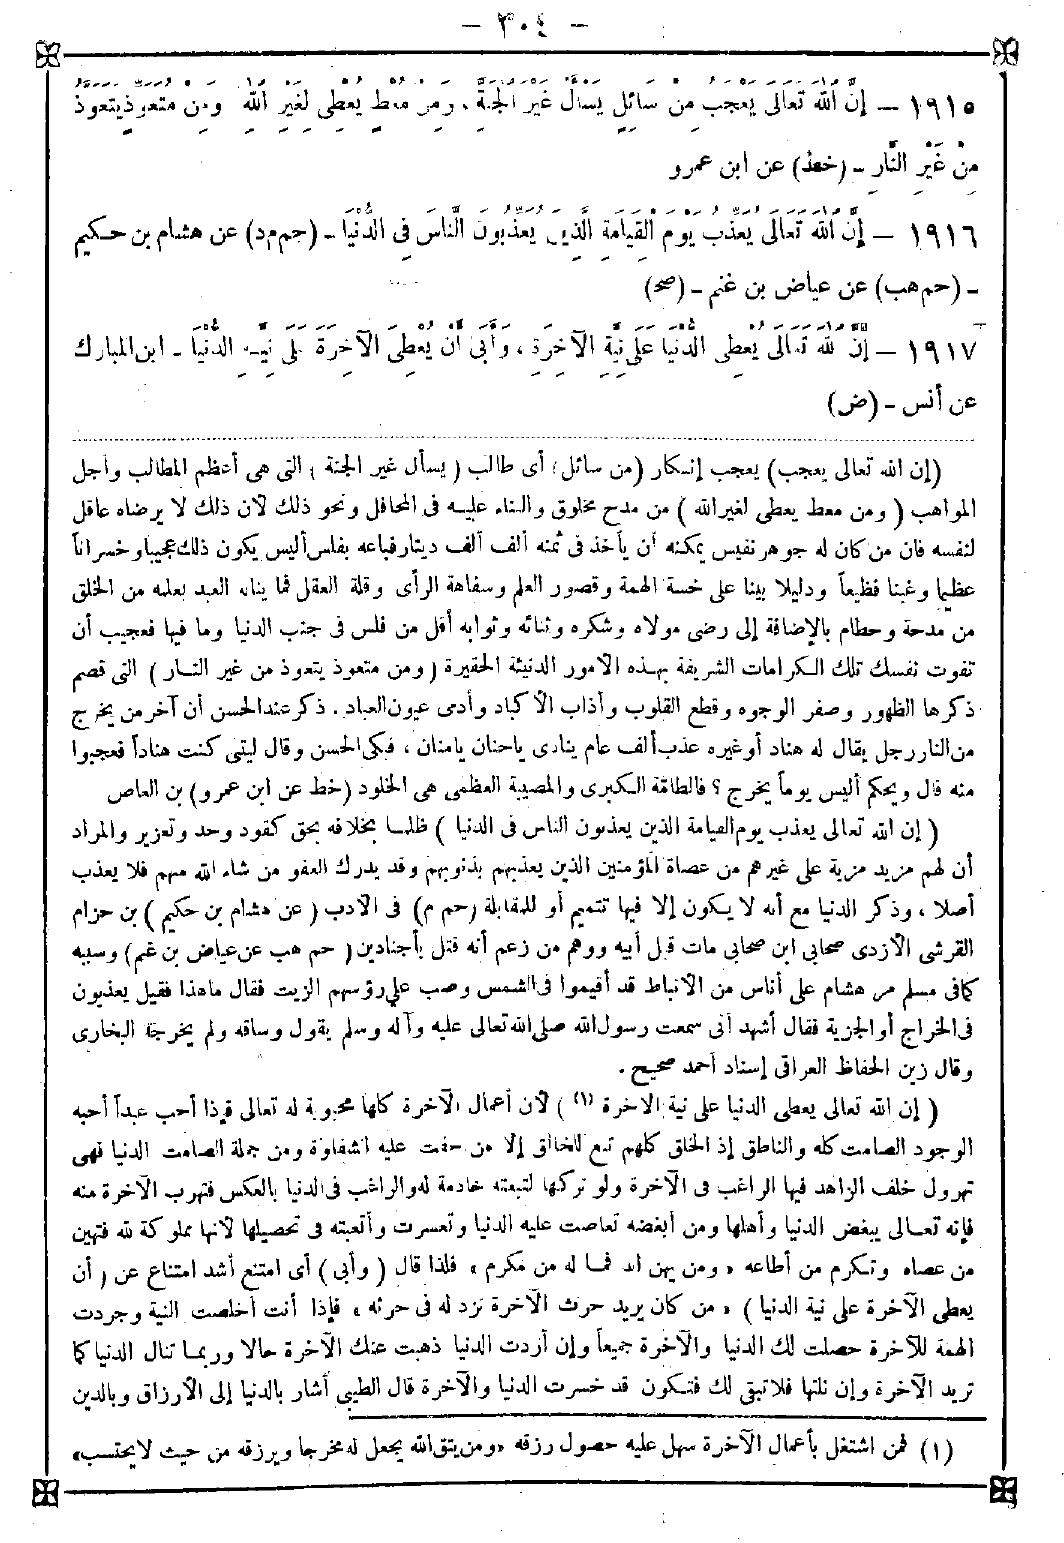 - ٣٠٤ -
١٩١٥ – إِنَّ اللهَ تَعَالَى يَعْجَبُ مِنْ سَائِلٍ يَسْأَلُ غَيْرَ الْجَنَّةِ ، وَمِنْ مُعْطٍ يُعْطِي لِغَيْرِ اللهِ وَمِنْ مُتَعَوِّذٍ يَتَعَوَّذُ
مِنْ غَيْرِ النَّارِ - (خط) عن ابن عمرو
١٩١٦ – إِنَّ اللهَ تَعَالَى يُعَذِّبُ يَوْمَ الْقِيَامَةِ الَّذِينَ يُعَذِّبُونَ النَّاسَ فِي الدُّنْيَا - (حم م د) عن هشام بن حكيم
- (حم هب) عن عياض بن غنم - (صح)
١٩١٧ – إِنَّ اللهَ تَعَالَى يُعْطِي الدُّنْيَا عَلَى نِيَّةِ الْآخِرَةِ ، وَأَبَى أَنْ يُعْطِيَ الْآخِرَةَ عَلَى نِيَّةِ الدُّنْيَا - ابن المبارك
عن أنس - (ض)
(إن الله تعالى يعجب) يعجب إنكار (من سائل) أى طالب (يسأل غير الجنة) التى هى أعظم المطالب وأجل
المواهب (ومن معط يعطى لغير الله) من مدح مخلوق والثناء عليه فى المحافل ونحو ذلك لأن ذلك لا يرضاه عاقل
لنفسه فان من كان له جوهر نفيس يمكنه أن يأخذ فى ثمنه ألف ألف دينار فباعه بفلس أليس يكون ذلك عجيبا وخسراناً
عظيما وغبنا فظيعاً ودليلا بينا على خسة الهمة وقصور العلم وسفاهة الرأى وقلة العقل فما يناله العبد بعلمه من الخلق
من مدحة وحطام بالإضافة إلى رضى مولاه وشكره وثنائه وثوابه أقل من فلس فى جنب الدنيا وما فيها فعجيب أن
تفوت نفسك تلك الكرامات الشريفة بهذه الأمور الدنيئة الحقيرة (ومن متعوذ يتعوذ من غير النار) التى قصم
ذكرها الظهور وصفر الوجوه وقطع القلوب وأذاب الأكباد وأدمى عيون العباد . ذكر عند الحسن أن آخر من يخرج
من النار رجل يقال له هناد أو غيره عذب ألف عام ينادى ياحنان يامنان ، فبكى الحسن وقال ليتنى كنت هناداً فعجبوا
منه قال ويحكم أليس يوماً يخرج ؟ فالطامة الكبرى والمصيبة العظمى هى الخلود (خط عن ابن عمرو) بن العاص
(إن الله تعالى يعذب يوم القيامة الذين يعذبون الناس فى الدنيا) ظلما بخلافه بحق كقود وحد وتعزير والمراد
أن لهم مزيد مزية على غيرهم من عصاة المؤمنين الذين يعذبهم بذنوبهم وقد يدرك العفو من شاء الله منهم فلا يعذب
أصلا ، وذكر الدنيا مع أنه لا يكون إلا فيها تتميم أو للمقابلة (حم م) فى الأدب (عن هشام بن حكيم) بن حزام
القرشى الأزدى صحابى ابن صحابى مات قبل أبيه ووهم من زعم أنه قتل بأجنادين (حم هب عن عياض بن غنم) وسببه
كما فى مسلم مر هشام على أناس من الأنباط قد أقيموا فى الشمس وصب على رؤسهم الزيت فقال ماهذا فقيل يعذبون
فى الخراج أو الجزية فقال أشهد أنى سمعت رسول الله صلى الله تعالى عليه وآله وسلم يقول وساقه ولم يخرجه البخارى
وقال زين الحفاظ العراقى إسناد أحمد صحيح .
(إن الله تعالى يعطى الدنيا على نية الآخرة (١)) لأن أعمال الآخرة كلها محبوبة له تعالى فإذا أحب عبداً أحبه
الوجود الصامت كله والناطق إذ الخلق كلهم تبع للخالق إلا من حقت عليه الشقاوة ومن جملة الصامت الدنيا فهى
تهرول خلف الزاهد فيها الراغب فى الآخرة ولو تركها لتبعته خادمة له والراغب فى الدنيا بالعكس فتهرب الآخرة منه
فإنه تعالى يبغض الدنيا وأهلها ومن أبغضه تعاصت عليه الدنيا وتعسرت وأتعبته فى تحصيلها لأنها مملوكة لله فتهين
من عصاه وتكرم من أطاعه « ومن يهن الله فما له من مكرم » فلذا قال (وأبى) أى امتنع أشد امتناع عن (أن
يعطى الآخرة على نية الدنيا) « من كان يريد حرث الآخرة نزد له فى حرثه » فإذا أنت أخلصت النية وجردت
الهمة للآخرة حصلت لك الدنيا والآخرة جميعاً وإن أردت الدنيا ذهبت عنك الآخرة حالا وربما تنال الدنيا كما
تريد الآخرة وإن نلتها فلا تبقى لك فتكون قد خسرت الدنيا والآخرة قال الطيبى أشار بالدنيا إلى الأرزاق وبالدين
(١) فمن اشتغل بأعمال الآخرة سهل عليه حصول رزقه «ومن يتق الله يجعل له مخرجا ويرزقه من حيث لا يحتسب»